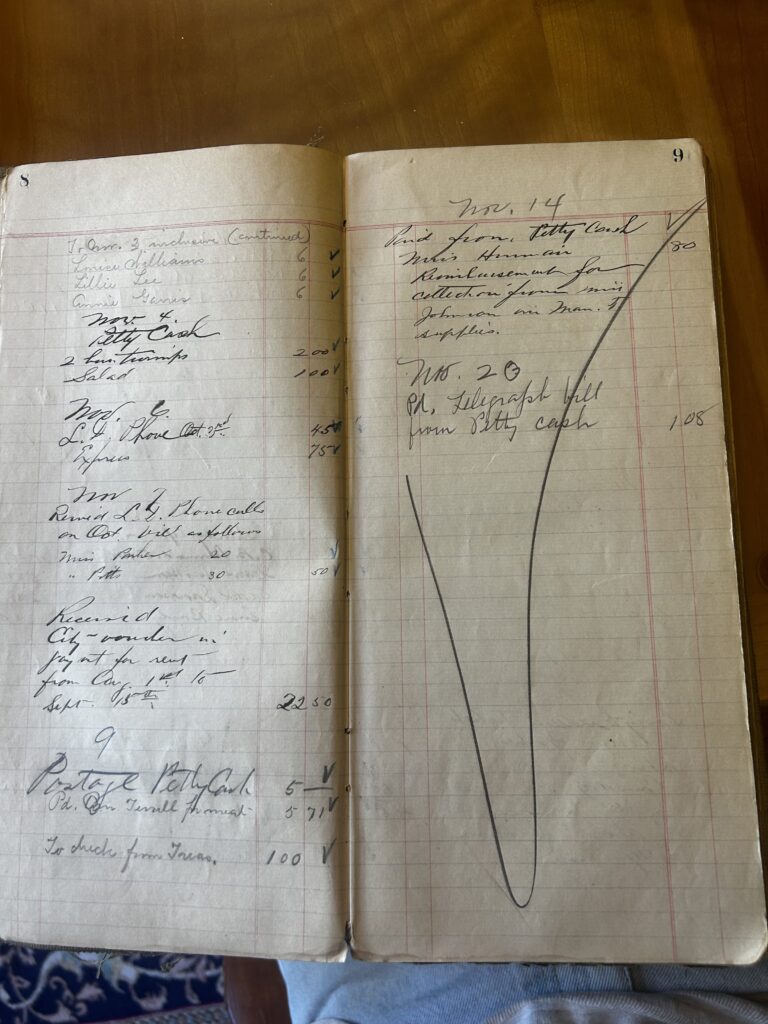 8
To Dom. 3, inclusive (continued)
Louise Williams 6 ✓
Lillie Lee 6 ✓
Annie 6 ✓
Nov. 4.
Petty Cash
2 bus. turnips 200 ✓
Salad 100 ✓
Nov. 6.
L. D. Phone Oct. 45 ✓
Express 75 ✓
Nov
L. D. Phone calls
on Oct. bill as follows
Miss 20
" Potts 30 50 ✓
Received
City - in
for rent
from 1st to
Sept. 15th 22 50
9
Postage Petty Cash 5 — ✓
Pd. Terrell for meat 5 71 ✓
To check from Treas. 100 ✓
9
Nov. 14
Paid from Petty Cash
Miss 80
Reimbursement for
collection from Miss
Johnson on
supplies.
Nov. 20
Pd. Telegraph bill
from Petty cash 1.08